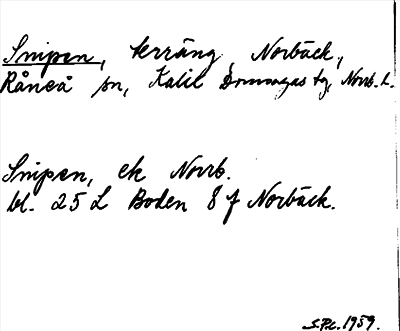 Snipen, terräng, Norbäck,
Råneå sn, Kalix Domsagas tg, Norrb. L.
Snipen, ek Norrb.
bl. 25 L Boden 8 f Norbäck.
S.P.L. 1959.